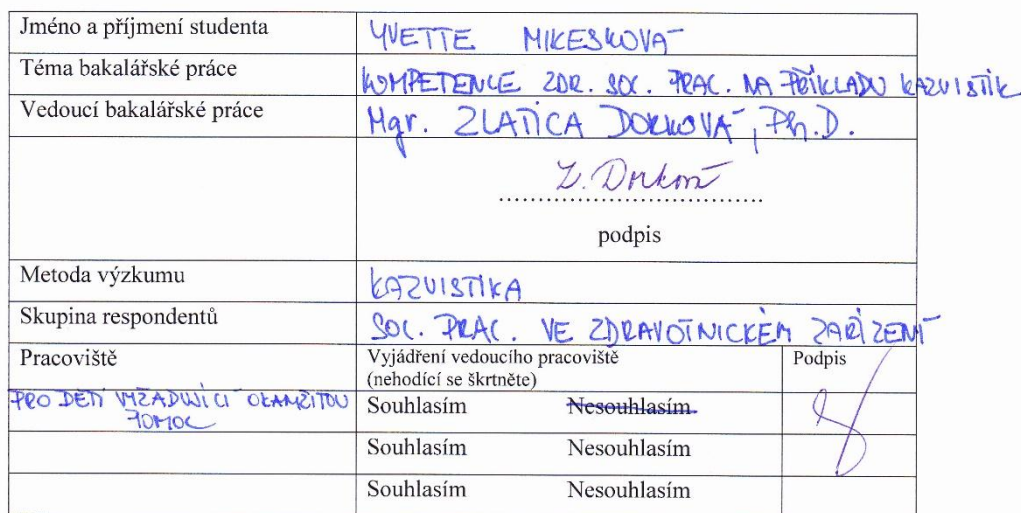 Jméno a příjmení studenta YVETTE MIKESKOVÁ
Téma bakalářské práce KOMPETENCE ZDR. SOC. PRAC. NA PŘÍKLADU KAZUISTIK
Vedoucí bakalářské práce Mgr. ZLATICA DORKOVÁ, Ph.D.
Z. Dorková
podpis
Metoda výzkumu KAZUISTIKA
Skupina respondentů SOC. PRAC. VE ZDRAVOTNICKÉM ZAŘÍZENÍ
Pracoviště Vyjádření vedoucího pracoviště Podpis
(nehodící se škrtněte)
PRO DĚTI VYŽADUJÍCÍ OKAMŽITOU Souhlasím Nesouhlasím
POMOC
Souhlasím Nesouhlasím
Souhlasím Nesouhlasím